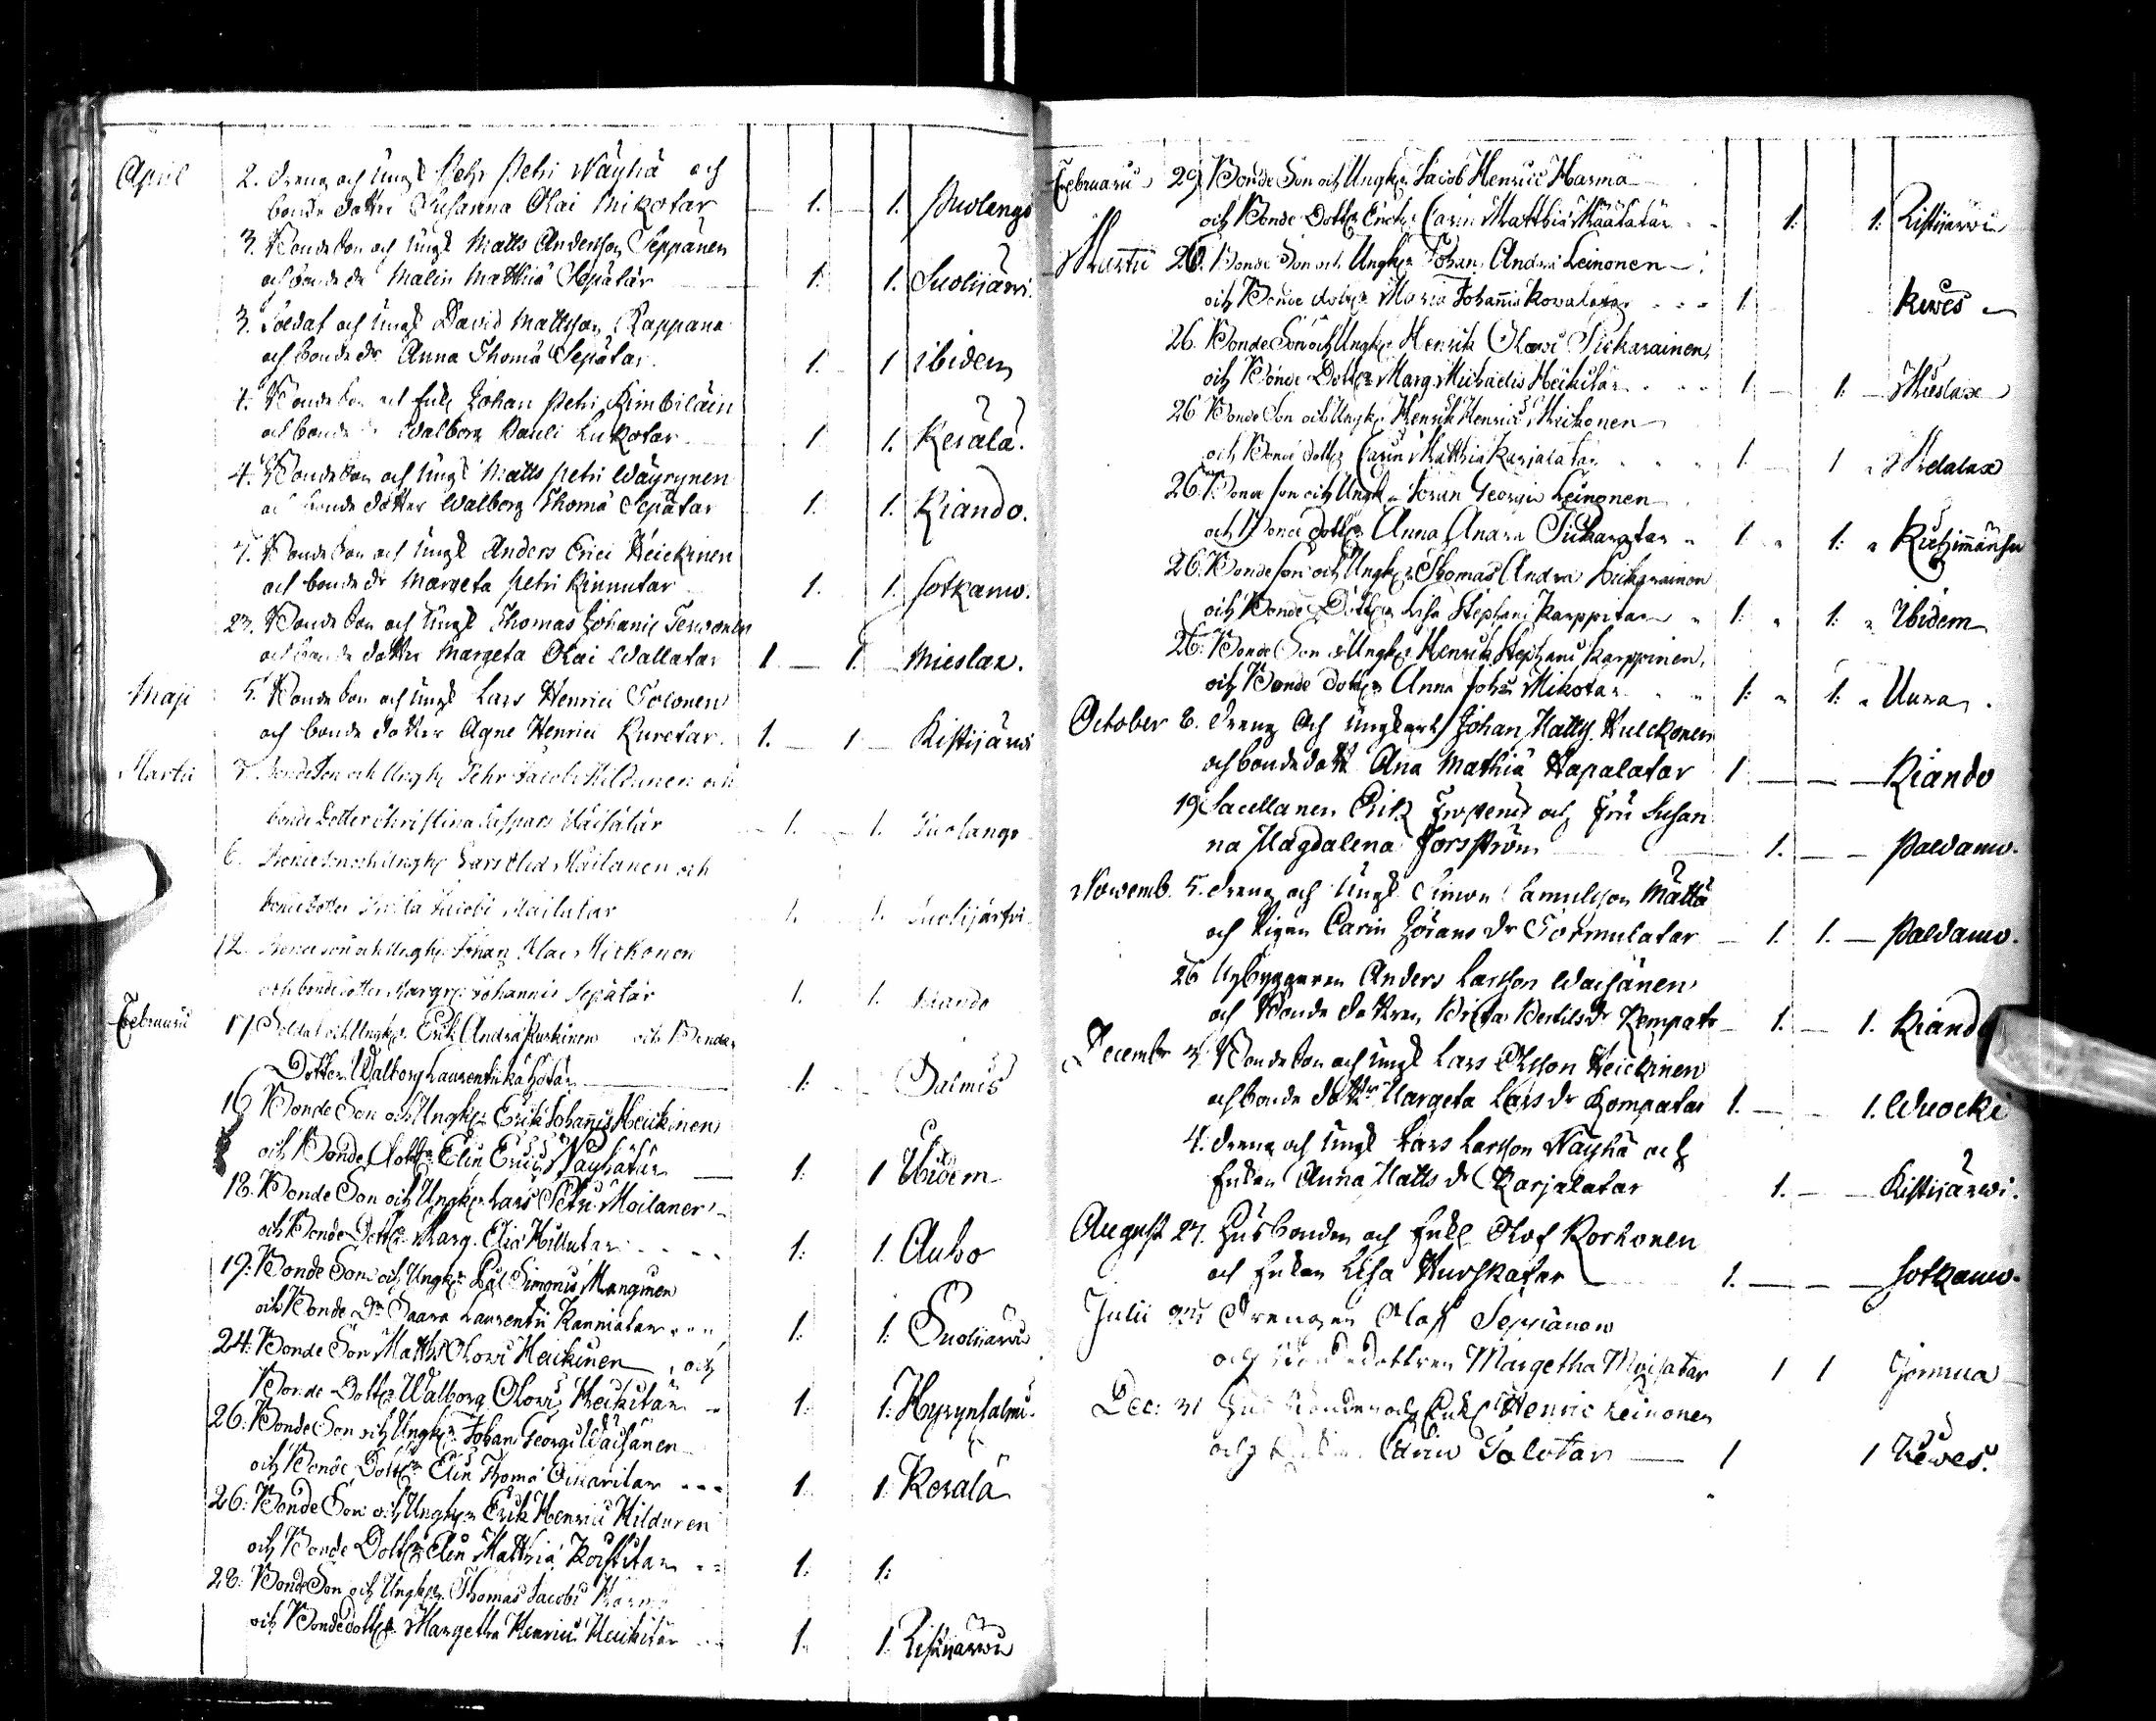 April 2. Dreng och Ungk Pehr Petri Näyhä och
bonde dotter Susanna Olai Mikotar 1. 1. Puolango
3. Bonde Son och Ungk Matts Andersson Seppänen
och bonde dr Malin Matthiä Sepätär 1. 1. Suolijärvi.
3. Soldat och Ungk David Mattsson Rappana
och bonde dr Anna Thomä Sepätar. 1. 1 ibidem
4. Bonde Son och Enkl Johan Petri Kimbiläin
och bonde Walborg Pauli Lukotar 1 1. Kerälä.
4. Bonde Son och Ungk Matts Petri Wäyrynen
bonde dotter Walborg Thomä Sepätar 1. 1. Kiando.
7. Bonde Son och Ungk Anders Erici Heickinen
och bonde dr Margeta Petri Kinnutar 1. 1. Sotkamo.
23. Bonde Son och Ungk Thomas Johanis Terwonen
och bonde dotter Margeta Olai Wallatar 1. 1. Mieslax.
Maji 5. Bonde Son och Ungk Lars Henrici Tolonen
och bonde dotter Agne Henrici Kuretar. 1. 1 Ristijärwi
Martii 5. Bonde Son och Ungk Pehr Jacobi Hildunen och
bonde Dotter Christina Caspars Väisätär 1. 1. Puolango
6. Bonde Son och Ungk Lars Eliä Mailanen och
bonde dotter Brita Jacobi Mailatar 1. 1. Suolijärfvi
12. Bonde son och Ungk Johan Olai Mickonen
och bonde dotter Margr. Johannis Sepätär 1. 1. Kiando
Februarii 17. Soldat och Ungk Erik Andrä Kurkinen och Bonde
Dotter Walborg Laurentii 1. Salmis
16 Bonde Son och Ungk Erik Johannis Heikinen
och Bonde Dotter Elin Erici Näyhätär 1. 1 Ibidem
18. Bonde Son och Ungk Lars Petri Moilanen
och Bonde Dotter Marg. Eliä Killutar 1. 1. Auho
19: Bonde Son och Ungk Simonis Manginen
och Bonde Dr Saara Laurentii Kanniatar 1: 1: Suolijärwi
24: Bonde Son Matths Olowi Heikinen och
Bonde Dotter Walborg Olowi Heikitär 1. 1: Hyrynsalmi.
26: Bonde Son och Ungk Johan Georgi Wäisänen
och Bonde Dotter Elin Thomä Oikaritar 1. 1: Kerälä
26: Bonde Son och Ungk Erik Henrici Hilduren
och Bonde Dotter Elin Matthiä Korhitar 1: 1:
28: Bonde Son och Ungk Thomas Jacobi
och Bonde dotter Margetha Henrici Heikitär 1. 1: Ristijärwi
Februarii 29 Bonde Son och Ungk Jacob Henrici Harma
och Bonde Dotter Enck Carin Matthiä Määtätär 1: 1: Ristijärwi
Martii 26. Bonde Son och Ungk Johan Andrä Leinonen
och Bonde dotter Maria Johannis Kovalatar 1: Kiwes
26. Bonde Son och Ungk Henrik Olowi Pickarainen
och Bonde Dotter Marg. Michaelis Heikitär 1: 1: Mieslax
26 Bonde Son och Ungk Henrik Henrici Mickonen
och Bonde dotter Carin Matthiä Karjalatar 1. 1 Melalax
26. Bonde son och Ungk Jöran Georgii Leinonen
och Bonde dotter Anna Andrä 1. 1:
26. Bonde son och Ungk Thomas Andrä
och Bonde Dotter Lisa Stephani Karppitar 1: 1: Ibidem
26. Bonde Son och Ungk Henrik Stephani Karppinen,
och Bonde Dotter Anna Johan Mikotar 1: 1: Uura.
October 6. Dreng Och Ungkarl Johan Matts Hulckonen
och bonde dott Ana Mathiä Hapalatar 1 Kiando
19 Sacellanen Erik Frosterus och Fru Susan
na Magdalena Forsström 1. Paldamo.
Novemb. 5. Dreng och Ungk Simon Samulsson Mättä
och Pigan Carin Jörans dr Tormulatar 1. 1. Paldamo.
26 Nybyggaren Anders Larsson Waisänen
och Bonde dottren Brita Bertils dr Kempatr 1. 1. Kiando
Decembr 3. Bonde Son och Ungk Lars Olsson Heickinen
och bonde dottr Margeta Lars dr Kompatar 1. 1. Wuocki
4. Dreng och Ungk Lars Larsson Näyhä och
Enkan Anna Matts dr Karjalatar 1. Ristijärwi.
August 27. Husbonden och Enkl Olof Korhonen
och Enkan Lisa Hurskatar 1. Sotkamo.
Julii Drengen Olof Sepänen
och bondedottren Margetha Moisatar 1 1 Jormua
Dec: 31 Husbonden och Enkl Henric Leinonen
och Carin Talotar 1 1 Kiwes.